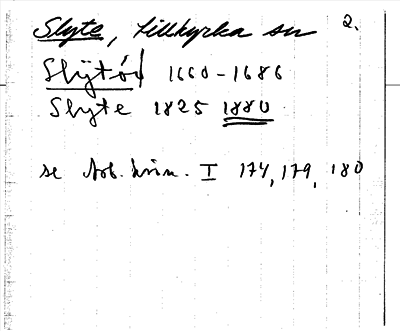 Slyte, Tillkyrka sn 2.
Slÿtó 1660-1686
Slyte 1825 1880
se I 174, 179, 180